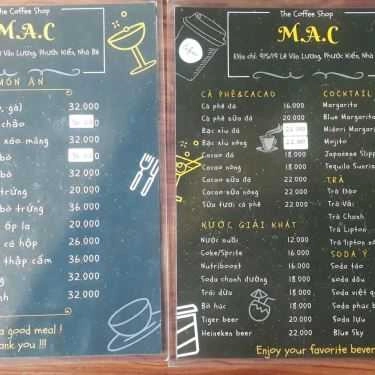 The Coffee Shop
M.A.C
Văn Lương, Phước Kiển, Nhà Bè
MÓN ĂN
, gà) 32.000
chảo
xào măng 32.000
bò
bò 32.000
trứng 20.000
bò trứng 36.000
ốp la 20.000
cá hộp 26.000
thập cẩm 36.000
32.000
32.000
a good meal !
ank you !!!
The Coffee Shop
M.A.C
Địa chỉ: 915/19 Lê Văn Lương, Phước Kiển, Nhà
CÀ PHÊ&CACAO
Cà phê đá 16.000
Cà phê sữa đá 20.000
Bạc xỉu đá 22.000
Bạc xỉu nóng 22.000
Cacao đá 18.000
Cacao nóng 18.000
Cacao sữa đá 22.000
Cacao sữa nóng 22.000
Sữa tươi cà phê 22.000
NƯỚC GIẢI KHÁT
Nước suối 12.000
Coke/Sprite 16.000
Nutriboost 16.000
Soda chanh đường 18.000
Trái dừa 18.000
Bò húc 18.000
Tiger beer 20.000
Heineken beer 22.000
COCKTAIL
Margarita
Blue Margarita
Midori Margarita
Mojito
Japanese Slipp
Tequila Sunrise
TRÀ
Trà Đào
Trà Vải
Trà Chanh
Trà Lipton
Trà Lipton
SODA Ý
Soda dâu
Soda việt
Soda phúc
Soda lựu
Blue Sky
Enjoy your favorite bever